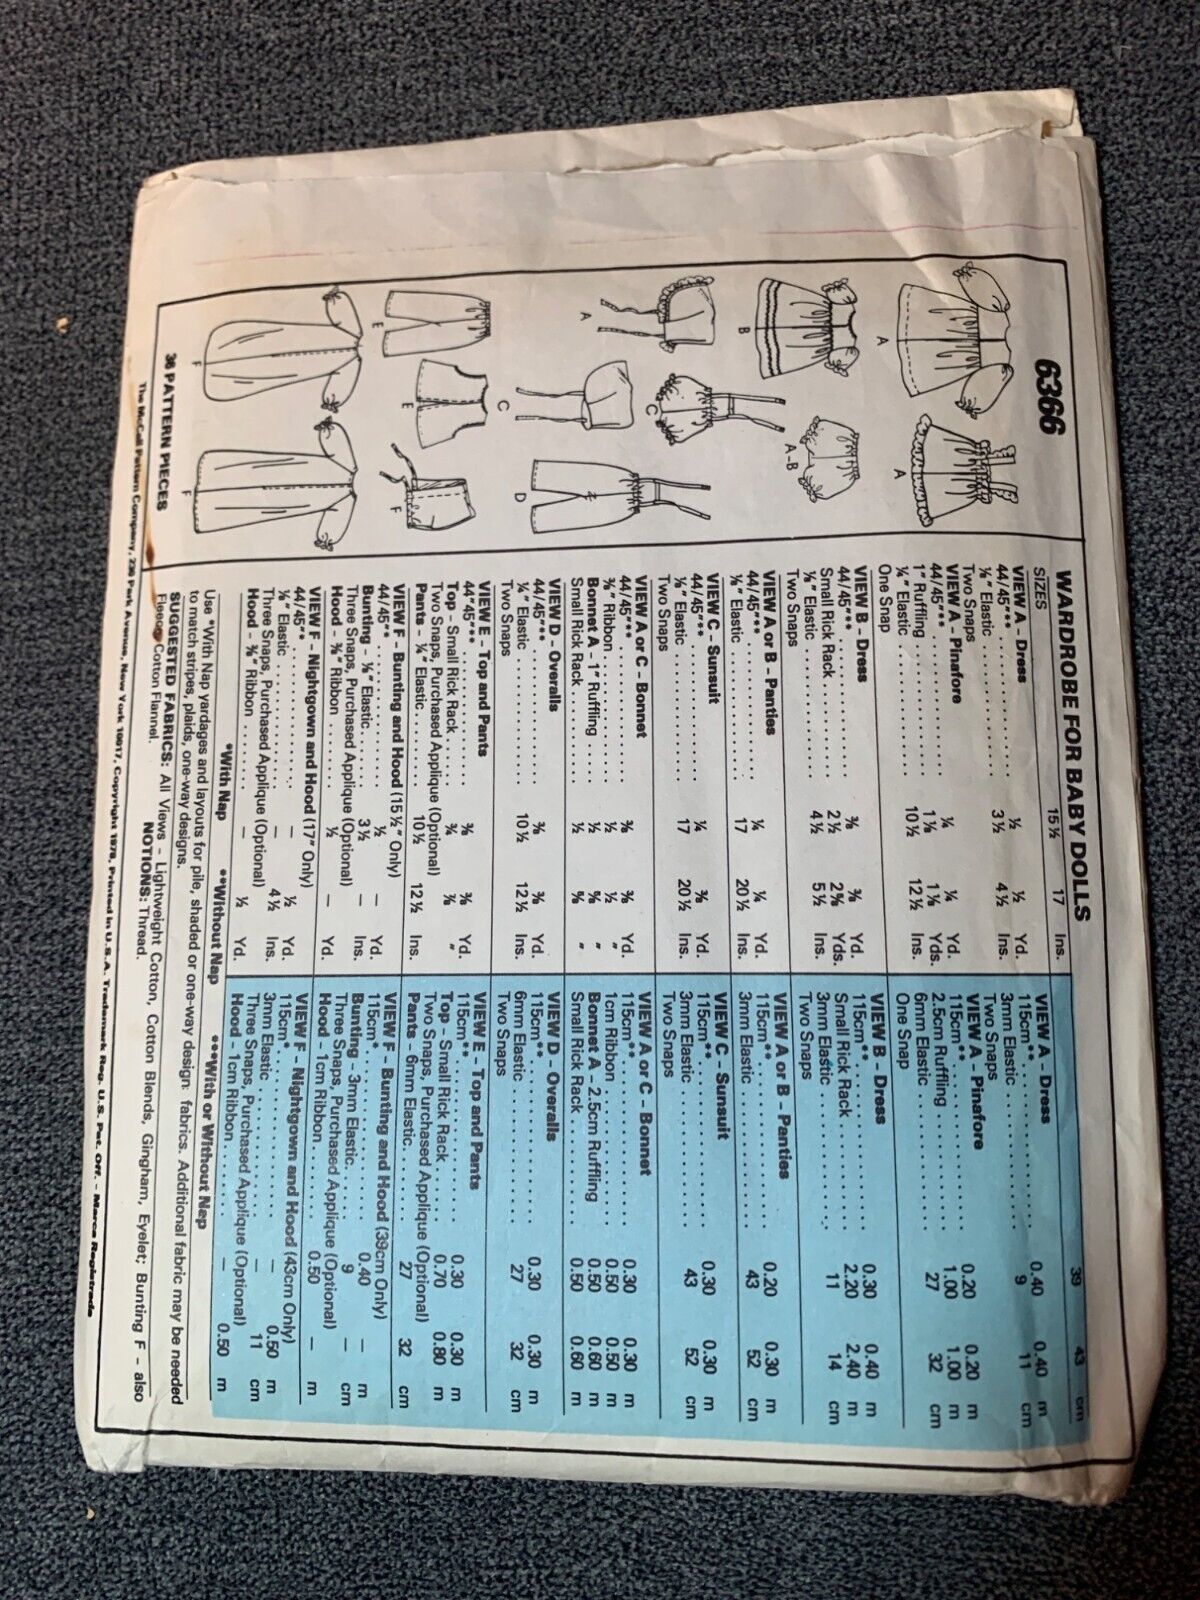 6366
A
A
B
A-B
A
C
C
D
E
E
F
F
F
36 PATTERN PIECES
WARDROBE FOR BABY DOLLS
SIZES 15½ 17 Ins.
VIEW A - Dress
44/45"** ½ ½ Yd.
⅛" Elastic 3½ 4½ Ins.
Two Snaps
VIEW A - Pinafore
44/45"*** ¼ ¼ Yd.
1" Ruffling 1⅛ 1⅛ Yds.
¼" Elastic 10½ 12½ Ins.
One Snap
VIEW B - Dress
44/45"*** ⅜ ⅜ Yd.
Small Rick Rack 2½ 2⅝ Yds.
⅛" Elastic 4½ 5½ Ins.
Two Snaps
VIEW A or B - Panties
44/45"*** ¼ ¼ Yd.
⅛" Elastic 17 20½ Ins.
VIEW C - Sunsuit
44/45"*** ¼ ⅜ Yd.
⅛" Elastic 17 20½ Ins.
Two Snaps
VIEW A or C - Bonnet
44/45"*** ⅜ ⅜ Yd.
⅜" Ribbon ½ ½ "
Bonnet A - 1" Ruffling ½ ⅝ "
Small Rick Rack ½ ⅝ "
VIEW D - Overalls
44/45"*** ⅜ ⅜ Yd.
¼" Elastic 10½ 12½ Ins.
Two Snaps
VIEW E - Top and Pants
44"45"*** ⅜ ⅜ Yd.
Top - Small Rick Rack ¾ ⅞ "
Two Snaps, Purchased Applique (Optional)
Pants - ¼" Elastic 10½ 12½ Ins.
VIEW F - Bunting and Hood (15½" Only)
44/45"** ½ — Yd.
Bunting - ⅛" Elastic 3½ — Ins.
Three Snaps, Purchased Applique (Optional)
Hood - ⅜" Ribbon ½ — Yd.
VIEW F - Nightgown and Hood (17" Only)
44/45"** — ½ Yd.
⅛" Elastic — 4½ Ins.
Three Snaps, Purchased Applique (Optional)
Hood - ⅜" Ribbon — ½ Yd.
39 43 cm
VIEW A - Dress
115cm** 0.40 0.40 m
3mm Elastic 9 11 cm
Two Snaps
VIEW A - Pinafore
115cm** 0.20 0.20 m
2.5cm Ruffling 1.00 1.00 m
6mm Elastic 27 32 cm
One Snap
VIEW B - Dress
115cm** 0.30 0.40 m
Small Rick Rack 2.20 2.40 m
3mm Elastic 11 14 cm
Two Snaps
VIEW A or B - Panties
115cm** 0.20 0.30 m
3mm Elastic 43 52 cm
VIEW C - Sunsuit
115cm** 0.30 0.30 m
3mm Elastic 43 52 cm
Two Snaps
VIEW A or C - Bonnet
115cm** 0.30 0.30 m
1cm Ribbon 0.50 0.50 m
Bonnet A - 2.5cm Ruffling 0.50 0.60 m
Small Rick Rack 0.50 0.60 m
VIEW D - Overalls
115cm** 0.30 0.30 m
6mm Elastic 27 32 cm
Two Snaps
VIEW E - Top and Pants
115cm** 0.30 0.30 m
Top - Small Rick Rack 0.70 0.80 m
Two Snaps, Purchased Applique (Optional)
Pants - 6mm Elastic 27 32 cm
VIEW F - Bunting and Hood (39cm Only)
115cm* 0.40 — m
Bunting - 3mm Elastic 9 — cm
Three Snaps, Purchased Applique (Optional)
Hood - 1cm Ribbon 0.50 — m
VIEW F - Nightgown and Hood (43cm Only)
115cm* — 0.50 m
3mm Elastic — 11 cm
Three Snaps, Purchased Applique (Optional)
Hood - 1cm Ribbon — 0.50 m
*With Nap **Without Nap ***With or Without Nap
Use *With Nap yardages and layouts for pile, shaded or one-way design fabrics. Additional fabric may be needed
to match stripes, plaids, one-way designs.
SUGGESTED FABRICS: All Views - Lightweight Cotton, Cotton Blends, Gingham, Eyelet; Bunting F - also
Fleece, Cotton Flannel. NOTIONS: Thread.
The McCall Pattern Company, 230 Park Avenue, New York 10017, Copyright 1978, Printed in U.S.A. Trademark Reg. U.S. Pat. Off. - Marca Registrada